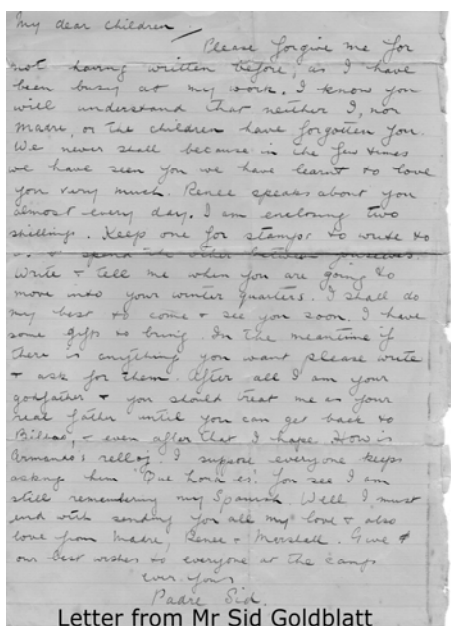 My dear children
Please forgive me for
not having written before, as I have
been busy at my work. I know you
will understand that neither I, nor
Madre, or the children have forgotten you.
We never shall because in the few times
we have seen you we have learnt to love
you very much. Renee speaks about you
almost every day. I am enclosing two
shillings. Keep one for stamps to write to
& spend the other between yourselves.
Write & tell me when you are going to
move into your winter quarters. I shall do
my best to come & see you soon. I have
some gifts to bring. In the meantime if
there is anything you want please write
& ask for them. After all I am your
godfather & you should treat me as your
real father until you can get back to
Bilbao, & even after that I hope. How is
Armando's relloj. I supose everyone keeps
asking him 'Que hora es'. You see I am
still remembering my Spanish. Well I must
end with sending you all my love & also
love from Madre, Renee & Marshall. Give
our best wishes to everyone at the camp
ever yours
Padre Sid.
Letter from Mr Sid Goldblatt